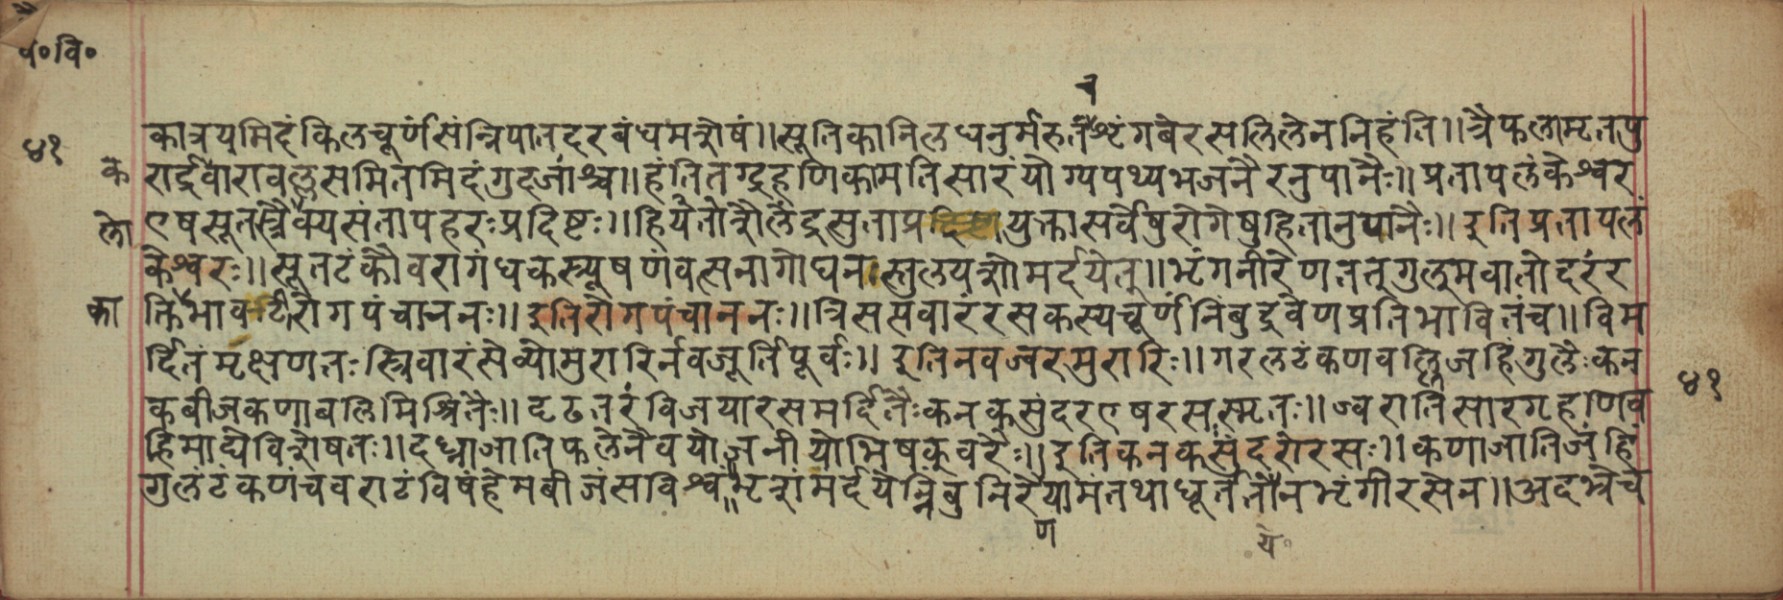 प॰वि॰
च
४१
कात्रयमिदंकिलचूर्णसंन्निपातदरबंधमशेषं॥सूतिकानिलधनुर्मरुतश्टंगबेरसलिलेननिहंति॥त्रैफलामृतपु
क
रार्द्रवारावल्लसमितमिदंगुदजांश्च॥हंतितग्द्रहणिकामतिसारंयोग्यपथ्यभजनैरनुपानैः॥प्रतापलंकेश्वर
लो
एषसूतस्त्रैक्यसंतापहरःप्रदिष्टः॥हियेतोशैलेंद्रसुताप्रदिष्टायुक्तासर्वेषुरोगेषुहितानुपानैः॥इतिप्रतापलं
केश्वरः॥सूतटंकौवरागंधकस्त्र्यूषणंवत्सनागोघनस्तुलययोमर्दयेत्॥भृंगनीरेणतत्गुल्मवातोदरंर
का
क्तिभावटीरोगपंचाननः॥इतिरोगपंचाननः॥त्रिसप्तवारंरसकस्यचूर्णंनिंबुद्रवेणप्रतिभावितंच॥विम
र्दितंमृक्षणतःस्त्रिवारंसेव्योमुरारिर्नवजूर्तिपूर्वः॥इतिनवज्वरमुरारिः॥गरलटंकणवल्लिजहिंगुलैःकन
४१
कबीजकणाबलिमिश्रितैः॥दृढतरंविजयारसमर्दितैःकनकसुंदरएषरसस्मृतः॥ज्वरातिसारगृहणिव
हिमाद्येविशेषतः॥दध्नाजातिफलेनैवयोजनीयोभिषक्वरैः॥इतिकनकसुंदरोरसः॥कणाजातिजंहिं
गुलंटंकणंचवराटंविषंहेमबीजंसविश्वं॥भृशंमर्दयेन्निंबुनिरेयामतथाधूर्ततोनभृंगीरसेन॥अदभ्रेच
ण
य॰